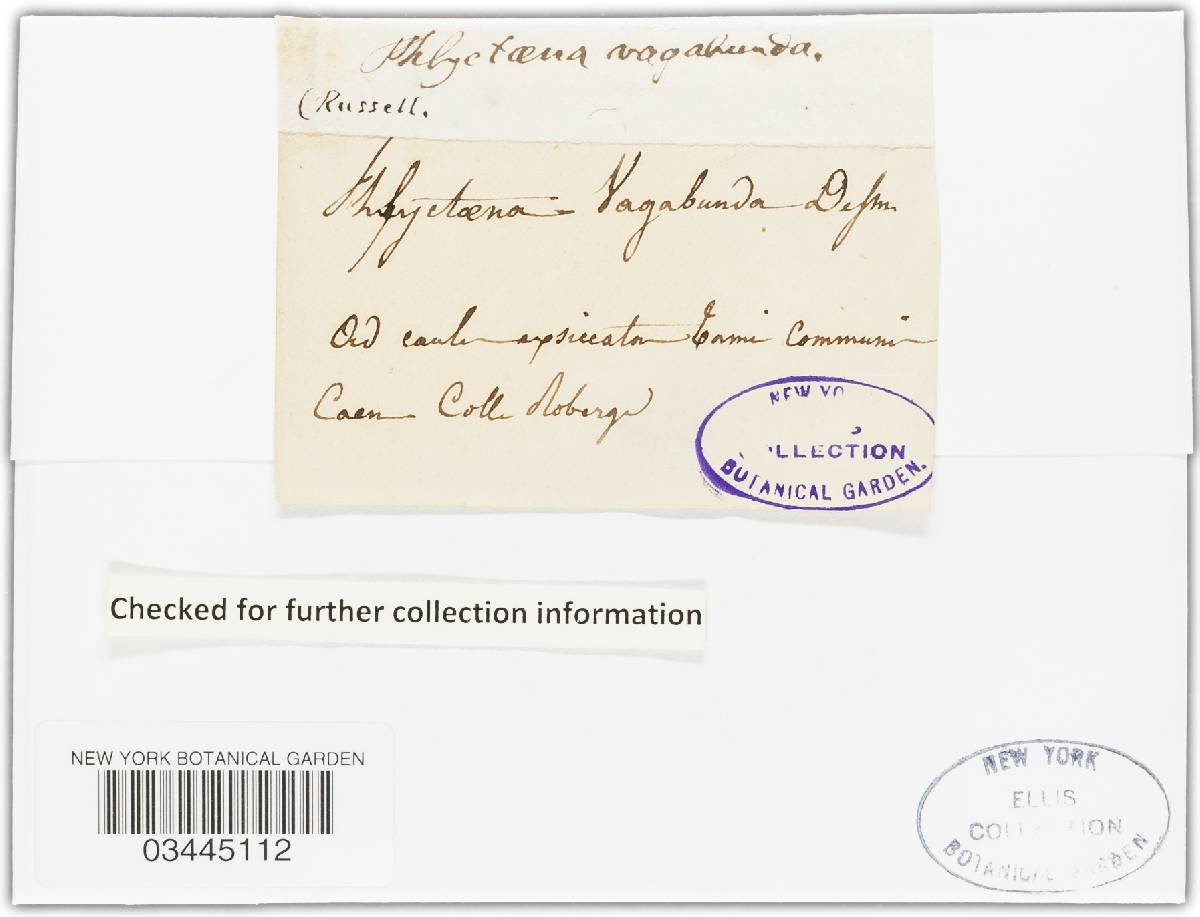 Phlyctæna vagabunda.
(Russell.
Phlyctæna Vagabunda Desm
Ad caules exsiccatos Tami Communis
Caen Coll. Roberge
NEW YO
LLECTION
BOTANICAL GARDEN.
Checked for further collection information
NEW YORK BOTANICAL GARDEN
03445112
NEW YORK
ELLIS
COLLECTION
BOTANICAL GARDEN